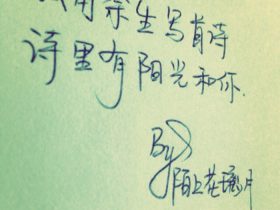 我用余生写首诗
诗里有阳光和你.
By
陌上花瑶月